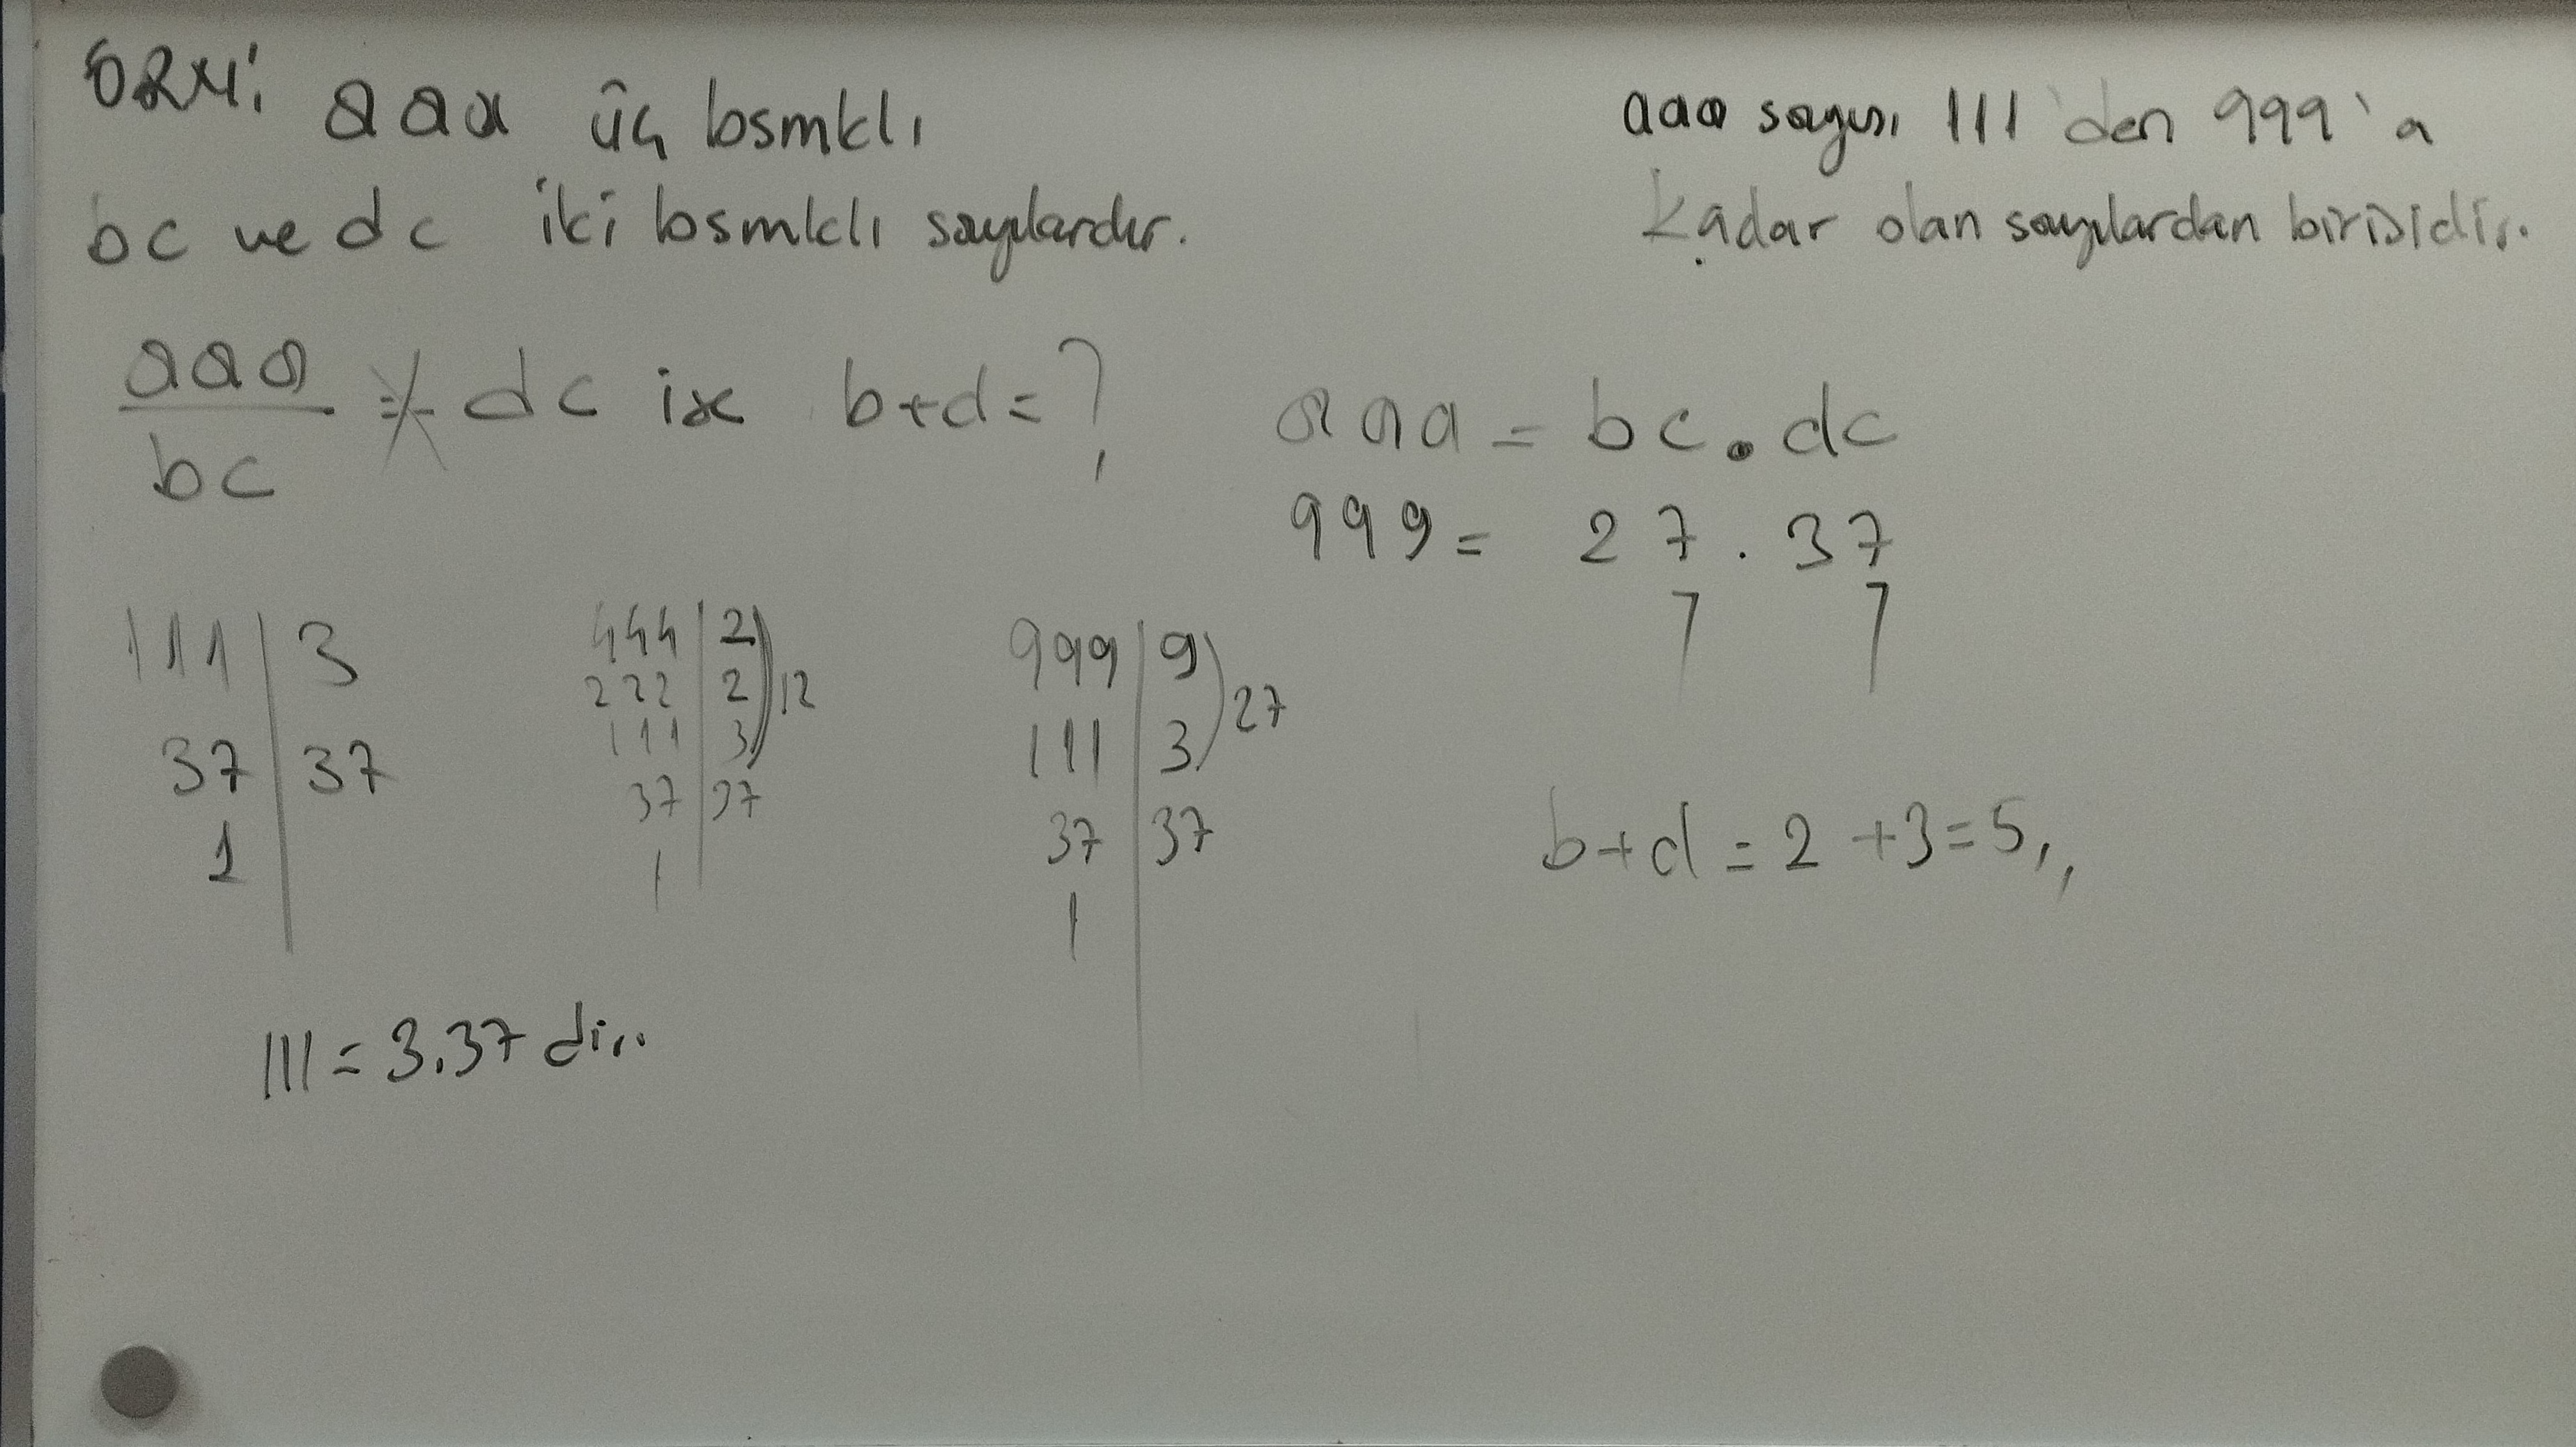 ÖRN:
aaa üç bsmklı
bc ve dc iki bsmklı sayılardır.
aaa
bc
= dc ise b+d=?
111 | 3
37 | 37
1
111=3.37 dir.
444 | 2
222 | 2
111 | 3
37 | 37
1
12
999 | 9
111 | 3
37 | 37
1
27
aaa sayısı 111'den 999'a
kadar olan sayılardan birisidir.
aaa = bc . dc
999 = 27 . 37
7 7
b+d = 2 +3=5,,